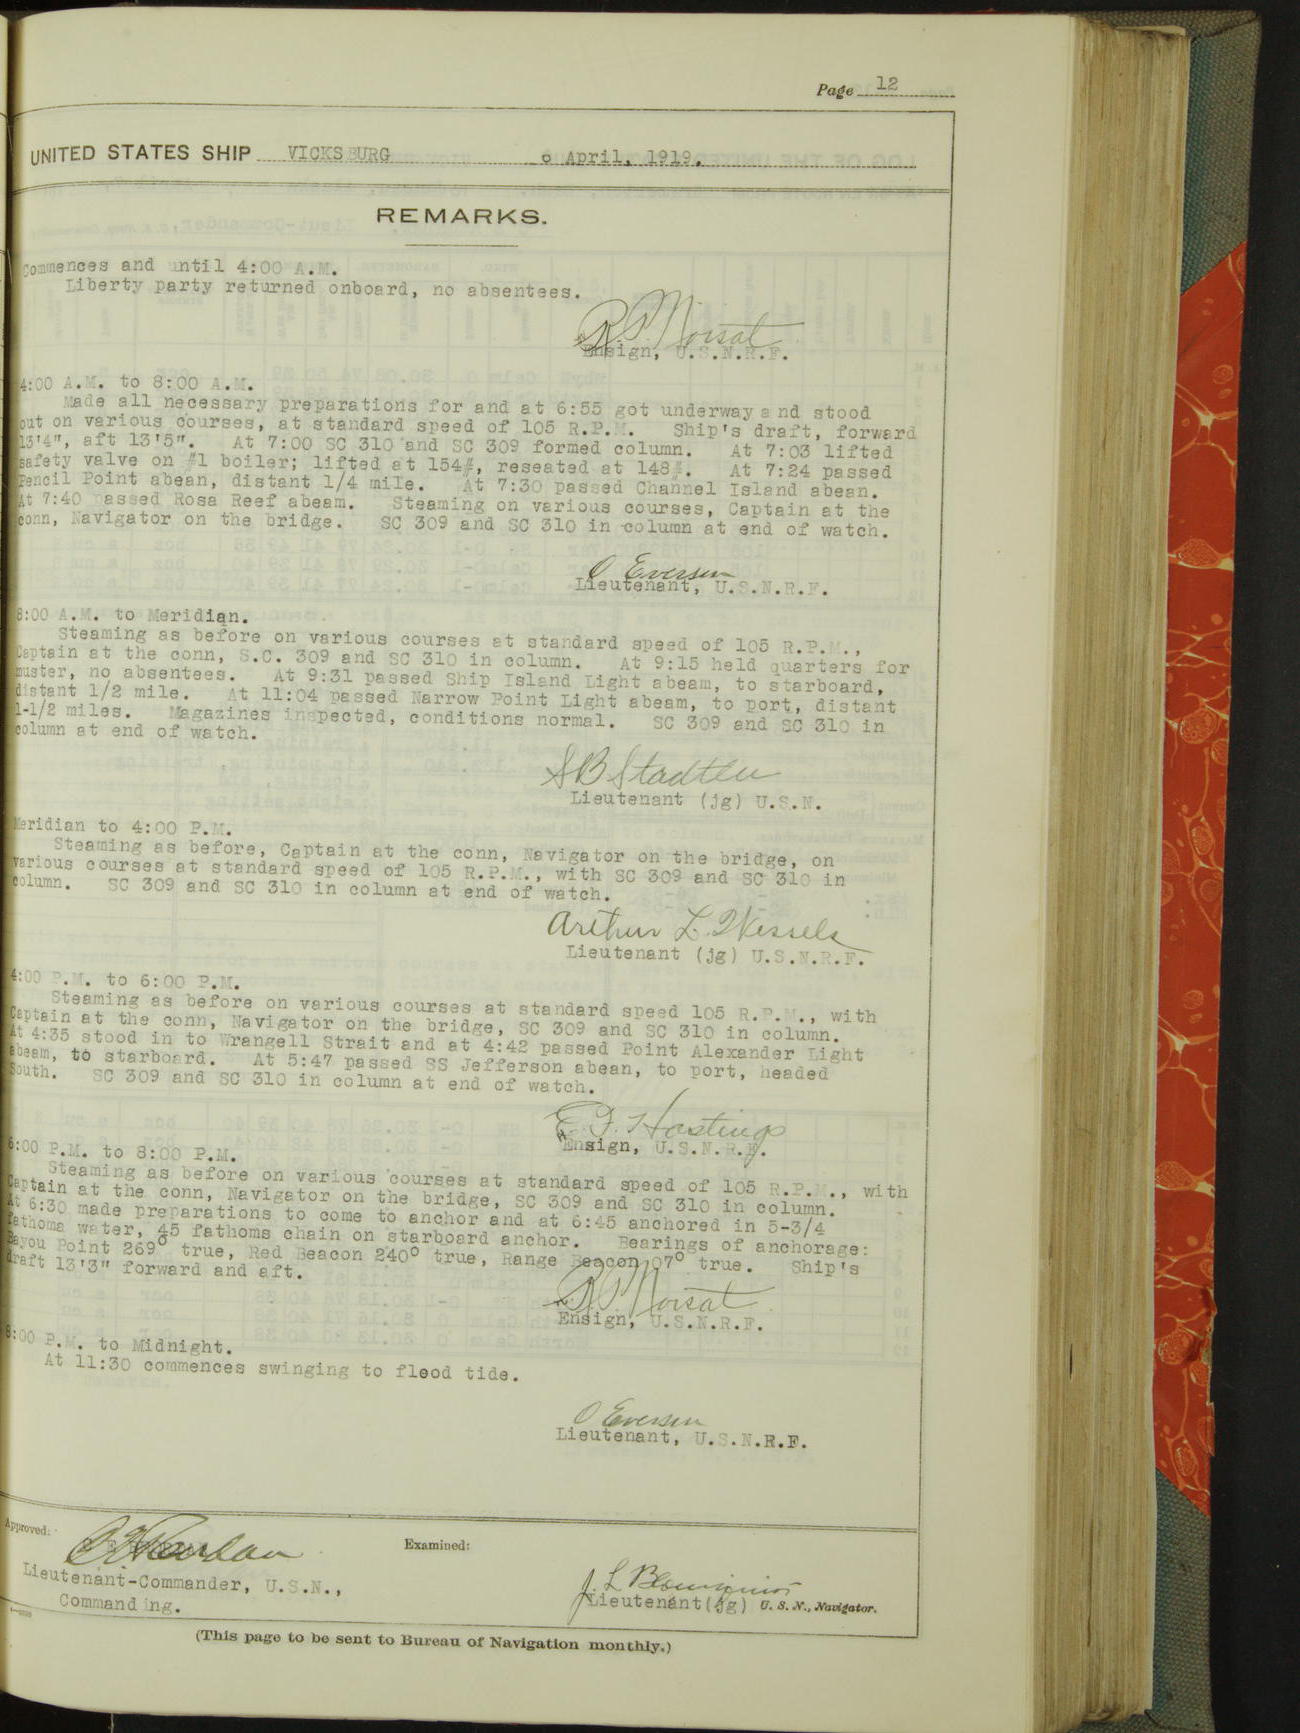 Page 12
UNITED STATES SHIP VICKSBURG 6 April, 1919.
REMARKS.
Commences and until 4:00 A.M.
Liberty party returned onboard, no absentees.
Ensign, U.S.N.R.F.
4:00 A.M. to 8:00 A.M.
Made all necessary preparations for and at 6:55 got underway and stood
out on various courses, at standard speed of 105 R.P.M. Ship's draft, forward
13'4", aft 13'5". At 7:00 SC 310 and SC 309 formed column. At 7:03 lifted
safety valve on #1 boiler; lifted at 154#, reseated at 148#. At 7:24 passed
Pencil Point abean, distant 1/4 mile. At 7:30 passed Channel Island abean.
At 7:40 passed Rosa Reef abeam. Steaming on various courses, Captain at the
conn, Navigator on the bridge. SC 309 and SC 310 in column at end of watch.
O Eversen
Lieutenant, U.S.N.R.F.
8:00 A.M. to Meridian.
Steaming as before on various courses at standard speed of 105 R.P.M.,
Captain at the conn, S.C. 309 and SC 310 in column. At 9:15 held quarters for
muster, no absentees. At 9:31 passed Ship Island Light abeam, to starboard,
distant 1/2 mile. At 11:04 passed Narrow Point Light abeam, to port, distant
1-1/2 miles. Magazines inspected, conditions normal. SC 309 and SC 310 in
column at end of watch.
Lieutenant (jg) U.S.N.
Meridian to 4:00 P.M.
Steaming as before, Captain at the conn, Navigator on the bridge, on
various courses at standard speed of 105 R.P.M., with SC 309 and SC 310 in
column. SC 309 and SC 310 in column at end of watch.
Arthur L. Wessels
Lieutenant (jg) U.S.N.R.F.
4:00 P.M. to 6:00 P.M.
Steaming as before on various courses at standard speed 105 R.P.M., with
Captain at the conn, Navigator on the bridge, SC 309 and SC 310 in column.
At 4:35 stood in to Wrangell Strait and at 4:42 passed Point Alexander Light
abeam, to starboard. At 5:47 passed SS Jefferson abean, to port, headed
South. SC 309 and SC 310 in column at end of watch.
Hastings
Ensign, U.S.N.R.F.
6:00 P.M. to 8:00 P.M.
Steaming as before on various courses at standard speed of 105 R.P.M., with
Captain at the conn, Navigator on the bridge, SC 309 and SC 310 in column.
At 6:30 made preparations to come to anchor and at 6:45 anchored in 5-3/4
fathoms water, 45 fathoms chain on starboard anchor. Bearings of anchorage:
Bayou Point 269° true, Red Beacon 240° true, Range Beacon 07° true. Ship's
draft 13'3" forward and aft.
Ensign, U.S.N.R.F.
8:00 P.M. to Midnight.
At 11:30 commences swinging to flood tide.
O Eversen
Lieutenant, U.S.N.R.F.
Approved:
Examined:
Lieutenant-Commander, U.S.N.,
Commanding.
Lieutenant(jg) U. S. N., Navigator.
(This page to be sent to Bureau of Navigation monthly.)